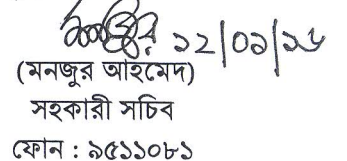 ১২/০১/১৬
(মনজুর আহমেদ)
সহকারী সচিব
ফোন : ৯৫১১০৮১